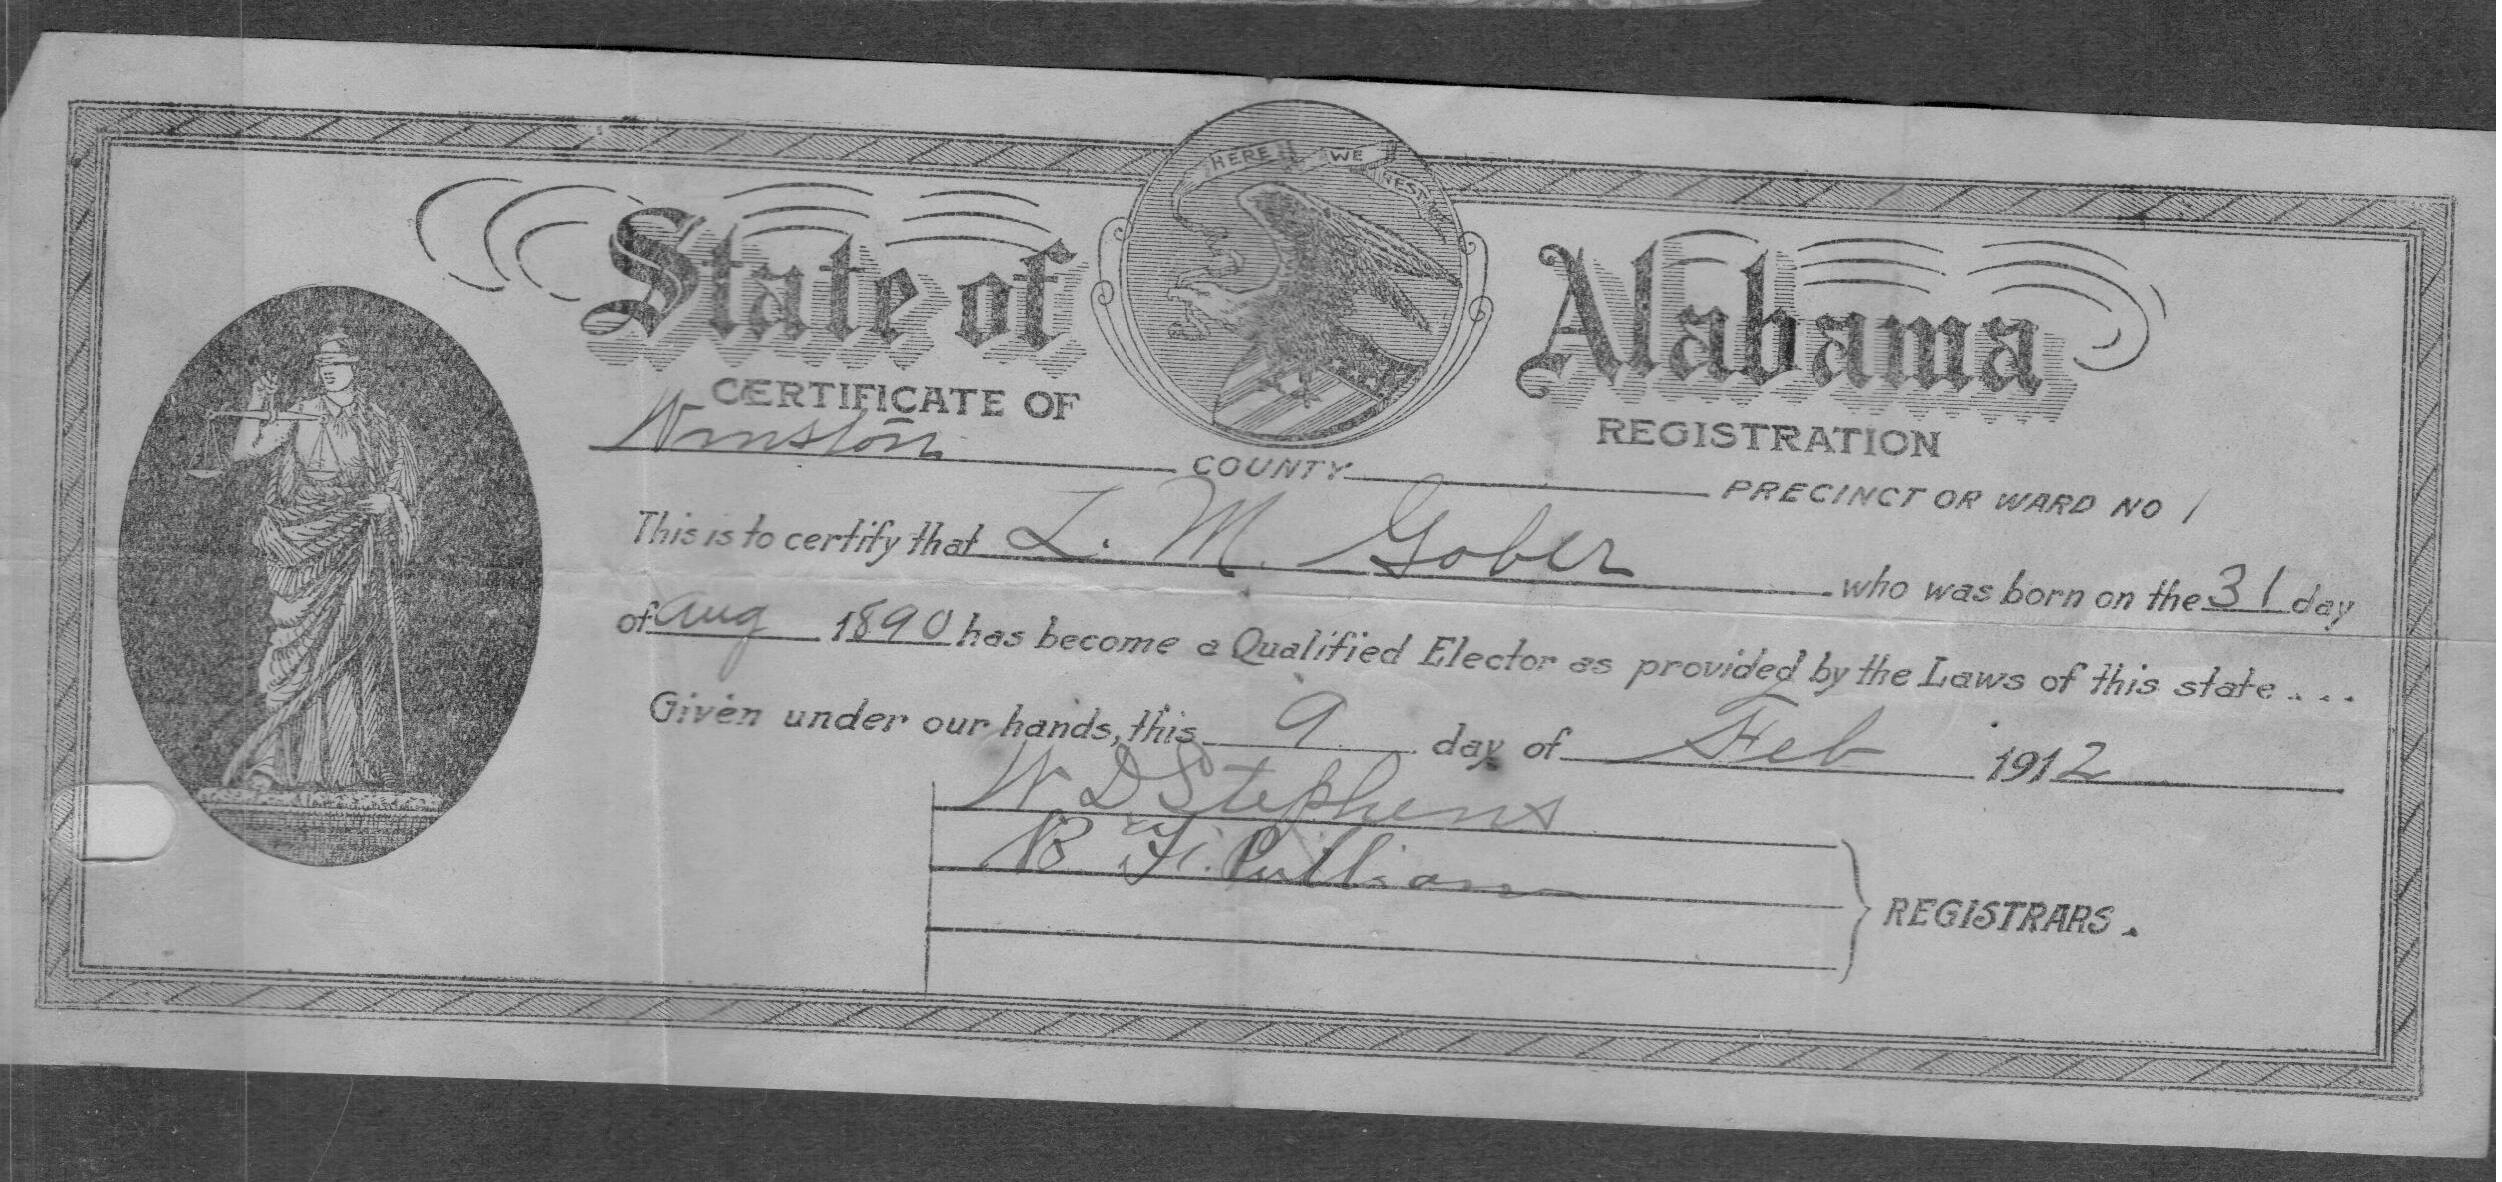 HERE WE REST
State of Alabama
CERTIFICATE OF REGISTRATION
Winston COUNTY PRECINCT OR WARD NO 1
This is to certify that L. M. Gober who was born on the 31 day
of Aug 1890 has become a Qualified Elector as provided by the Laws of this state....
Given under our hands, this 9 day of Feb 1912
W. D Stephens
B. F. Pulliam
REGISTRARS.